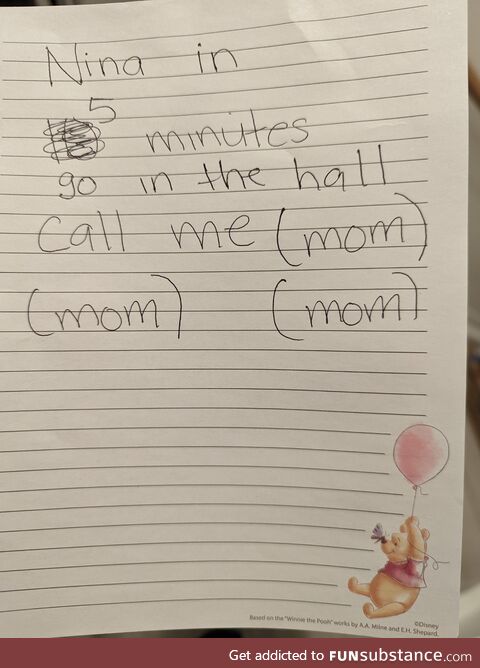 Nina in
5
minutes
go in the hall
Call me (mom)
(mom) (mom)
Based on the "Winnie the Pooh" works by A.A. Milne and E.H. Shepard.
©Disney
Get addicted to FUNsubstance.com